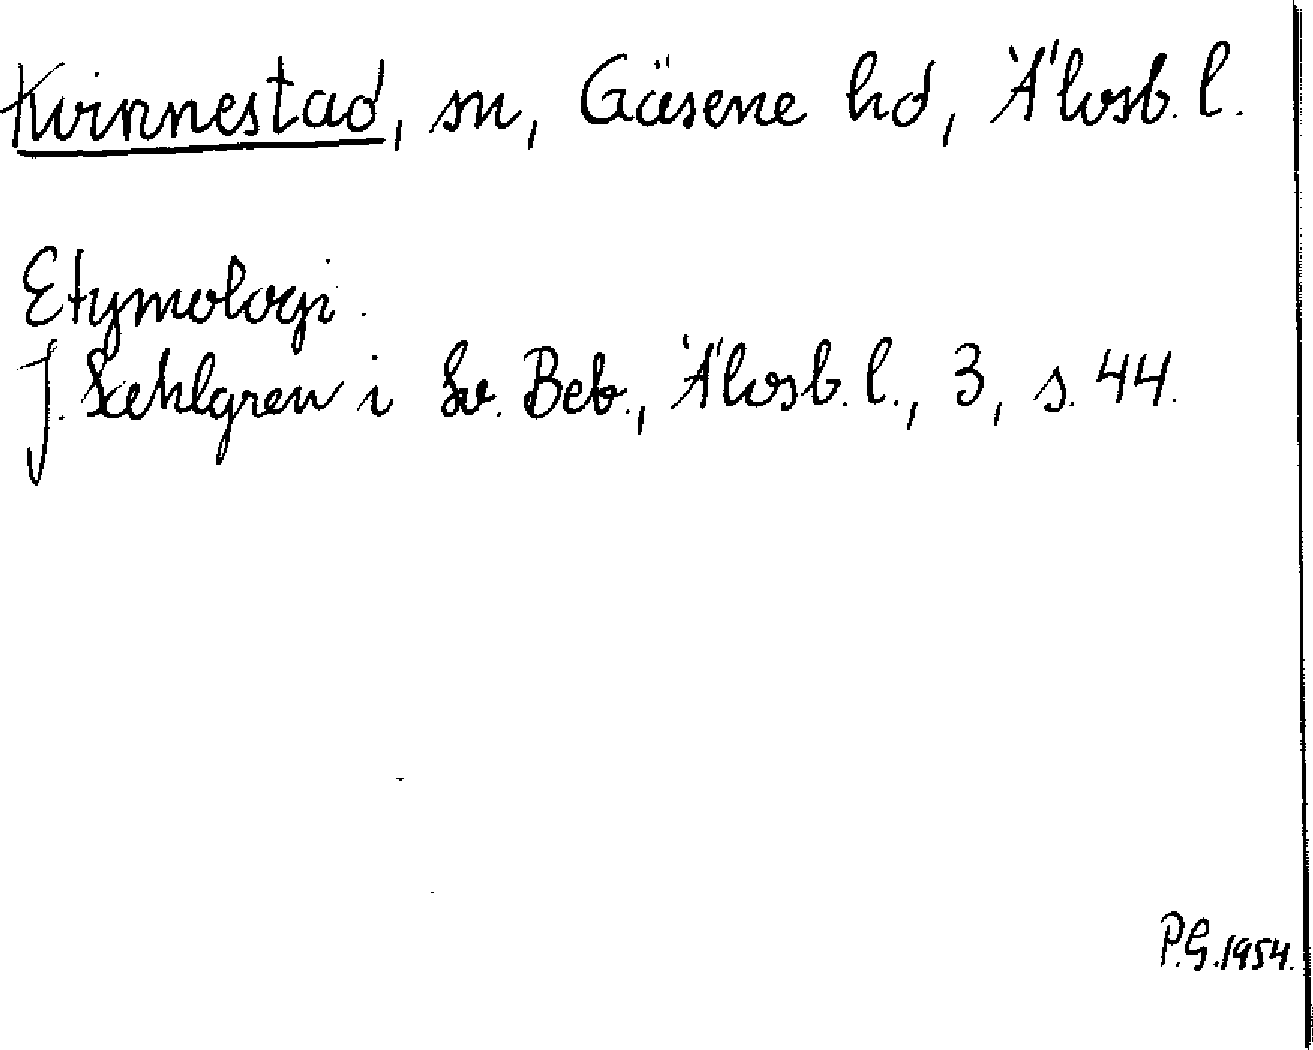 Kvinnestad, sn, Gäsene hd, Älvsb. l.
Etymologi.
J. Sahlgren i Sv. Beb., Älvsb. l., 3, s. 44.
P.G. 1954.